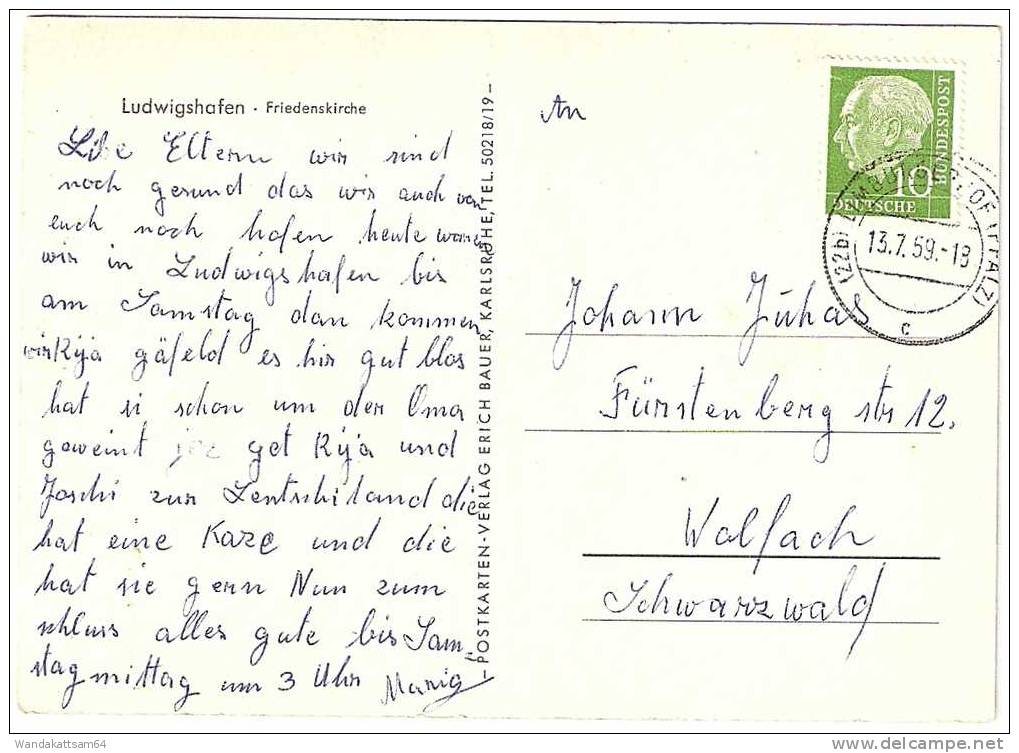 Ludwigshafen · Friedenskirche
Libe Eltern wir sind
noch gesund das wir auch von
euch noch hofen heute waren
wir in Ludwigshafen bis
am Samstag dan kommen
wir Kija gäfeld es hir gut blos
hat si schon um der Oma
geweint get Kija und
Joschi zur Lentschiland die
hat eine Kaze und die
hat sie gern Nun zum
schluss alles gute bis Sam-
stagmittag um 3 Uhr
-POSTKARTEN-VERLAG ERICH BAUER, KARLSRUHE, TEL. 50218/19-
An
Johann Juhas
Fürstenberg str 12.
Wolfach
Schwarzwald
10
DEUTSCHE
BUNDESPOST
(22b) (PFALZ)
13.7.59.-18
c
Wandakattsam64
www.delcampe.net